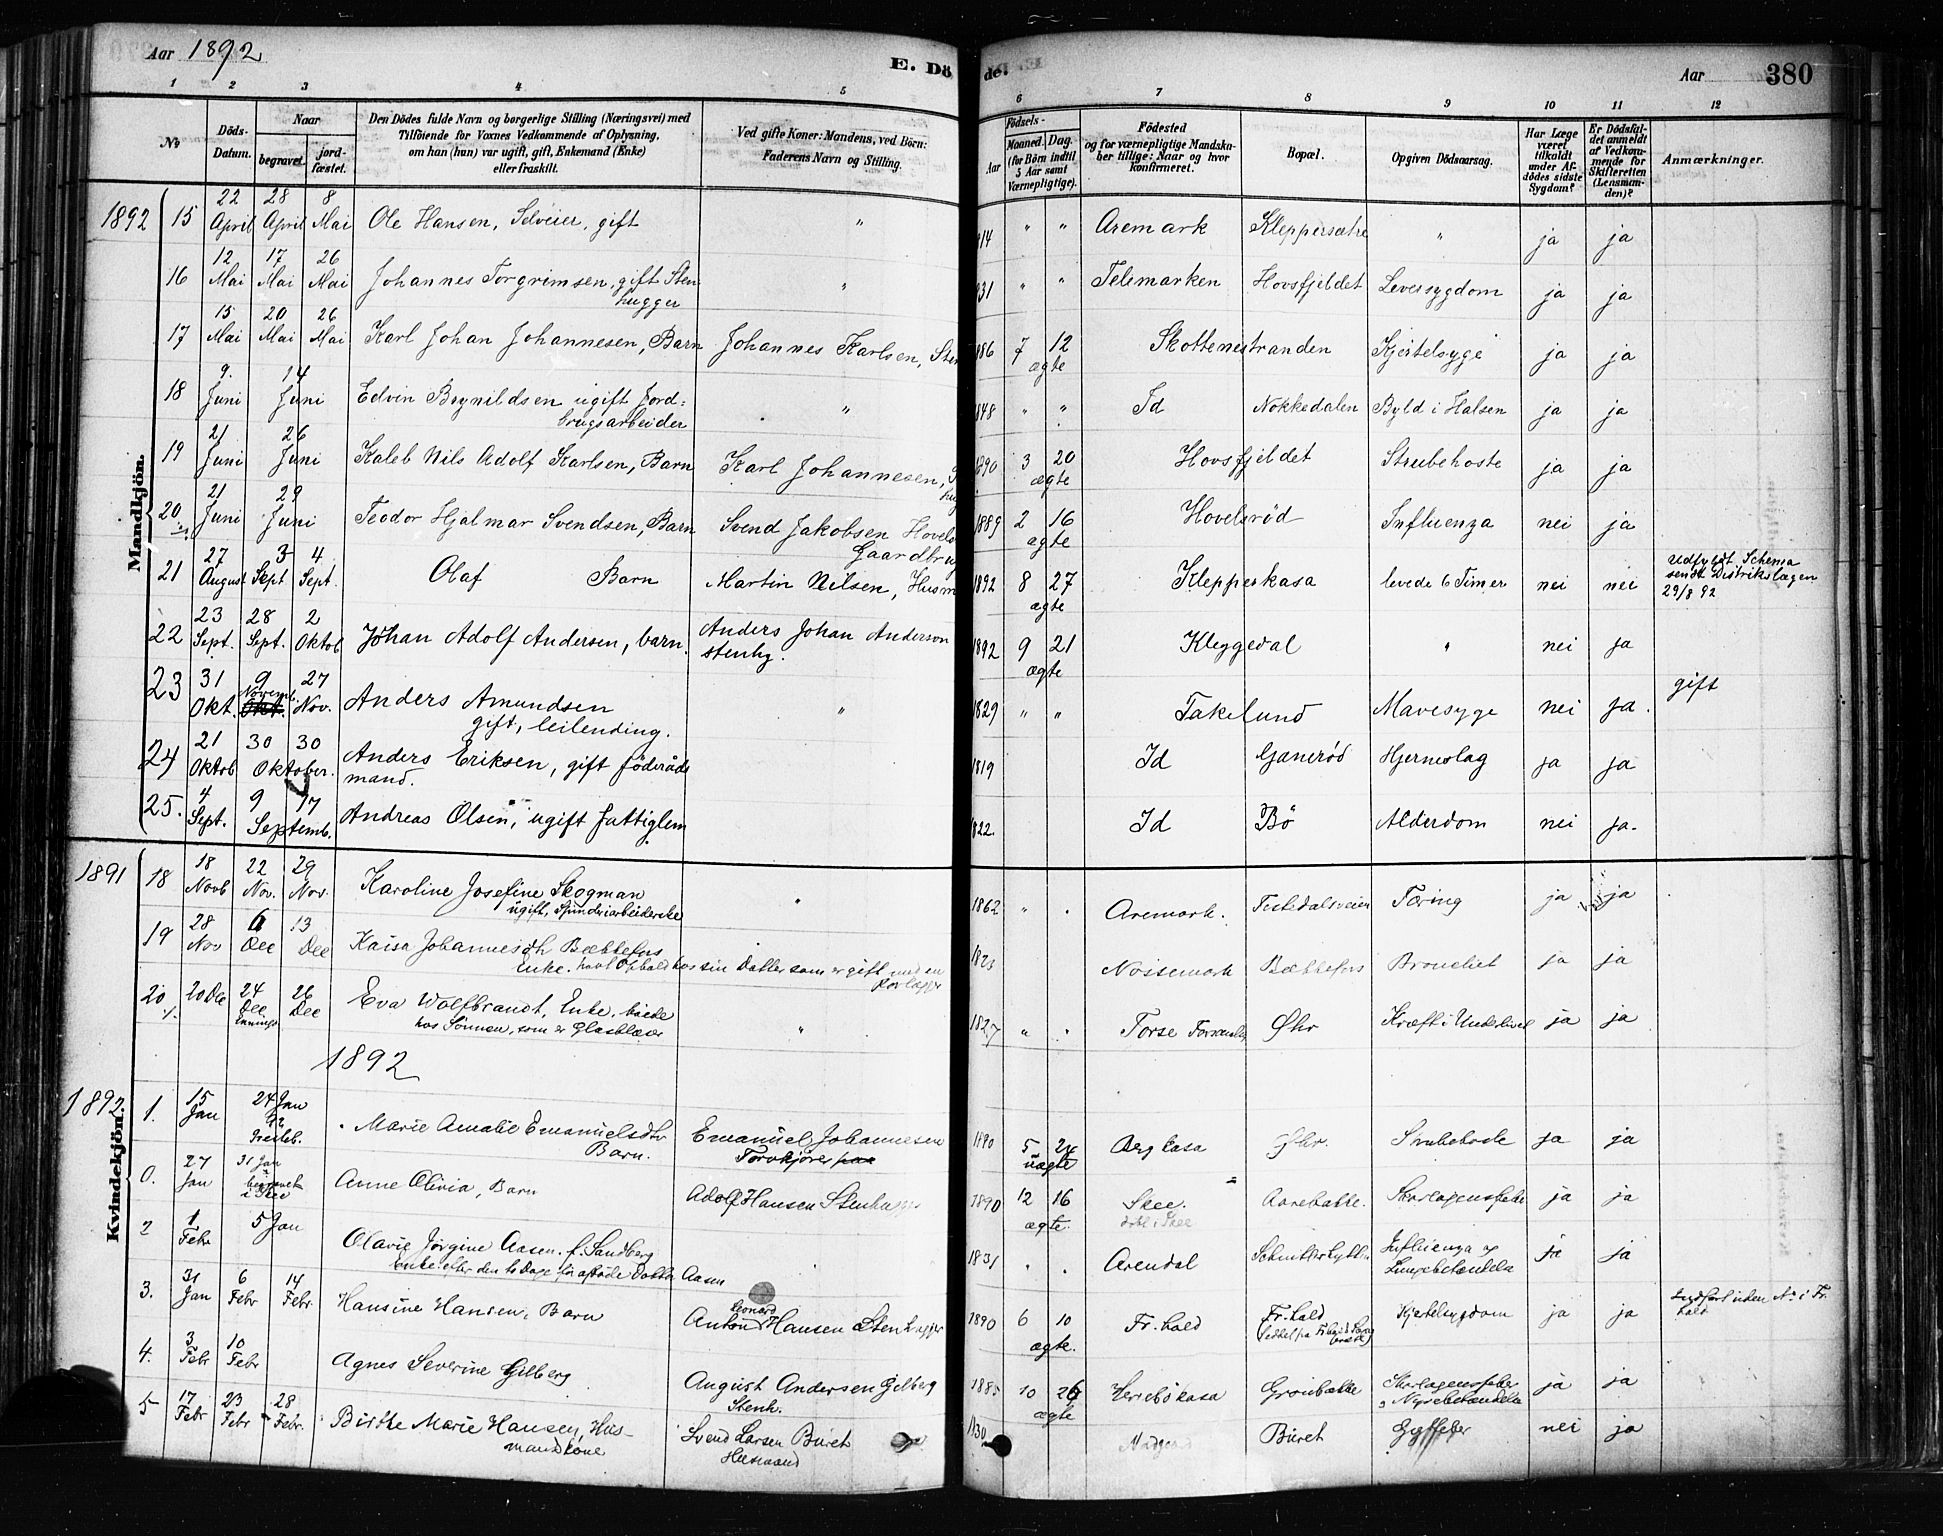 Aar 1892 E. Dö de. Aar 380
1 2 3 4 5 6 7 8 9 10 11 12
No
Döds-Datum.
Naar
begravet.
jord-fæstet.
Den Dödes fulde Navn og borgerlige Stilling (Næringsvei) med
Tilföiende for Voxnes Vedkommende af Oplysning,
om han (hun) var ugift, gift, Enkemand (Enke)
eller fraskilt.
Ved gifte Koner: Mandens, ved Börn:
Faderens Navn og Stilling.
Födsels-
Aar
Maaned. Dag.
(for Börn indtil
5 Aar samt
Værnepligtige).
Födested
og for værnepligtige Mandska-
ber tillige: Naar og hvor
konfirmeret.
Bopæl.
Opgiven Dödsaarsag.
Har Læge
været
tilkaldt
under Af-
dödes sidste
Sygdom?
Er Dödsfal-
det anmeldt
af Vedkom-
mende for
Skifteretten
(Lensman-
den)?
Anmærkninger.
Mandkjön.
1892 15 22 April 28 April 8 Mai Ole Hansen, Selveier, gift " 814 " " Aremark Kleppersætre " ja ja
16 12 Mai 17 Mai 26 Mai Johannes Torgrimsen, gift Sten
hugger " 831 " " Telemarken Hovsfjeldet Leversygdom ja ja
17 15 Mai 20 Mai 26 Mai Karl Johan Johannesen, Barn Johannes Karlsen, Sten 886 7 12 Skottenestranden Kjertelsyge ja ja
ægte
18 9. Juni 14 Juni Edvin Brynildsen ugift Jord=
brugsarbeider " 848 " " Id Nokkedalen Byld i Halsen ja ja
19 21 Juni 26 Juni Kaleb Nils Adolf Karlsen, Barn Karl Johannesen, 1890 3 20 Hovsfjeldet Strubehoste ja ja
ægte
20 21 Juni 29 Juni Teodor Hjalmar Svendsen, Barn Svend Jakobsen Hovels
Gaardbrug 1889 2 16 Hovelsrød Influenza nei ja
ægte
21 27 August 3 Sept 4 Sept. Olaf Barn Martin Nilsen, Husm 1892 8 27 Klepperkasa levede 6 Timer nei nei Udfyldt Schema
sendt Distriktslægen
29/8 92
ægte
22 23 Sept. 28 Sept. 2 Oktob Johan Adolf Andersen, barn. Anders Johan Anderson
stenhg. 1892 9 21 Kleggedal " nei ja
ægte
23 31 Okt. 9 Novemb. 27 Nov. Anders Amundsen
gift, leilending. " 1829 " " Takelund Mavesyge nei ja. gift
24 21 Oktob 30 30 Oktober. Anders Eriksen, gift föderåds
mand. 1819 Id Ganerød Hjerneslag ja ja
25. 4 Sept. 9 17 Septemb. Andreas Olsen, ugift Fattiglem 822. Id Bö Alderdom nei ja.
Kvindekjön.
1891 18 18 Novb 22 Nov. 29 Nov. Karoline Josefine Skogman
ugift, Spinderiarbeiderske " 1862 " " Aremark. Tistedalsveien Tæring ja ja
19 28 Nov 6 Dec 13 Dec Kaisa Johannesdtr Bækkefors
Enke. havt Ophold hos sin Datter som er gift med en 182 Noisemark Bækkefors Bronchit ja ja
20 20 Dec 24 Dec 26 Dec Eva Wolfbrandt, Enke, boede
hos Sönnen, som er Glasblæser " 1827 " " Torse Øhr Kræft i Underlivet ja ja
1892
1892 1. 15 Jan 24 Jan Marie Amalie Emanuelsdtr
Barn. Emanuel Johannesen
Torvkjører 1890 5 24 Berg kasa Øhr. Strubehoste ja ja
uægte
0. 27 Jan 31 Jan
begravet
i Skee Anne Olivia, Barn Adolf Hansen Stenhugger 1890 12 16 Skee. Aarebakke. Skarlagensfeber ja ja
ægte.
2 1 Febr 5 Jan Olavie Jörgine Aasen. f. Sandberg
Enke efter den Aasen 1831 " " Arendal Influenza og
Lungebetændelse ja ja
3. 31 Jan 6 Febr 14 Febr. Hansine Hansen, Barn Leonard
Anton Hansen Stenhugger 1890 6 10 Fr.hald Fr.hald Kjertelsygdom ja ja Indført uden No i Fr.
hald
ægte.
4. 3 Febr 10 Febr Agnes Severine Gilberg August Andersen Gilberg
Stenh. 1885 10 26 Herrebökasa Grönbakke Skarlagensfeber
og Nyrebetændelse ja ja
ægte
5 17 Febr 23 Febr 28 Febr. Birthe Marie Hansen, Hus-
mandkone Svend Larsen Büret
Husmand 1830 Büret nei ja